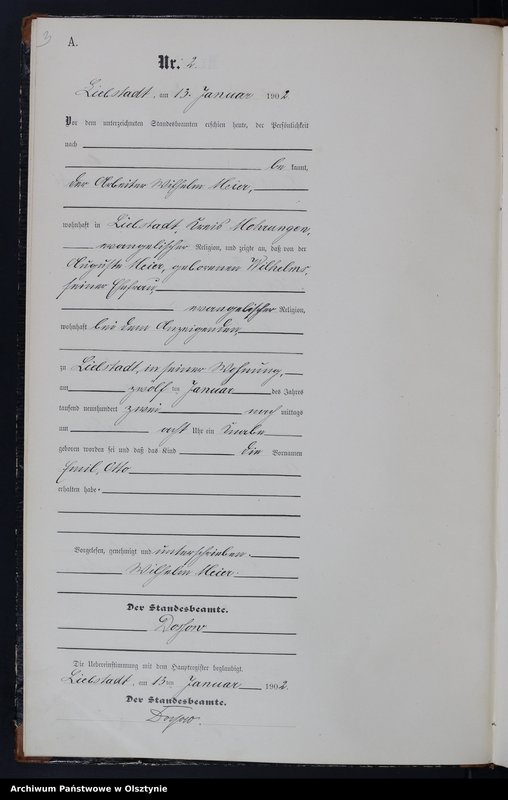 3
A.
Nr. 2.
Liebstadt, am 13. Januar 1902.
Vor dem unterzeichneten Standesbeamten erschien heute, der Persönlichkeit
nach
be kannt,
der Arbeiter Wilhelm Meier,
wohnhaft in Liebstadt, Kreis Mohrungen,
evangelischer Religion, und zeigte an, daß von der
Auguste Meier, geborenen Wilhelms,
seiner Ehefrau,
evangelischer Religion,
wohnhaft bei dem Anzeigenden,
zu Liebstadt, in seiner Wohnung,
am zwölf ten Januar des Jahres
tausend neunhundert zwei nach mittags
um acht Uhr ein Knabe
geboren worden sei und daß das Kind die Vornamen
Emil, Otto
erhalten habe.
Vorgelesen, genehmigt und unterschrieben.
Wilhelm Meier.
Der Standesbeamte.
Die Uebereinstimmung mit dem Hauptregister beglaubigt.
Liebstadt, am 13ten Januar 1902.
Der Standesbeamte.
Archiwum Państwowe w Olsztynie